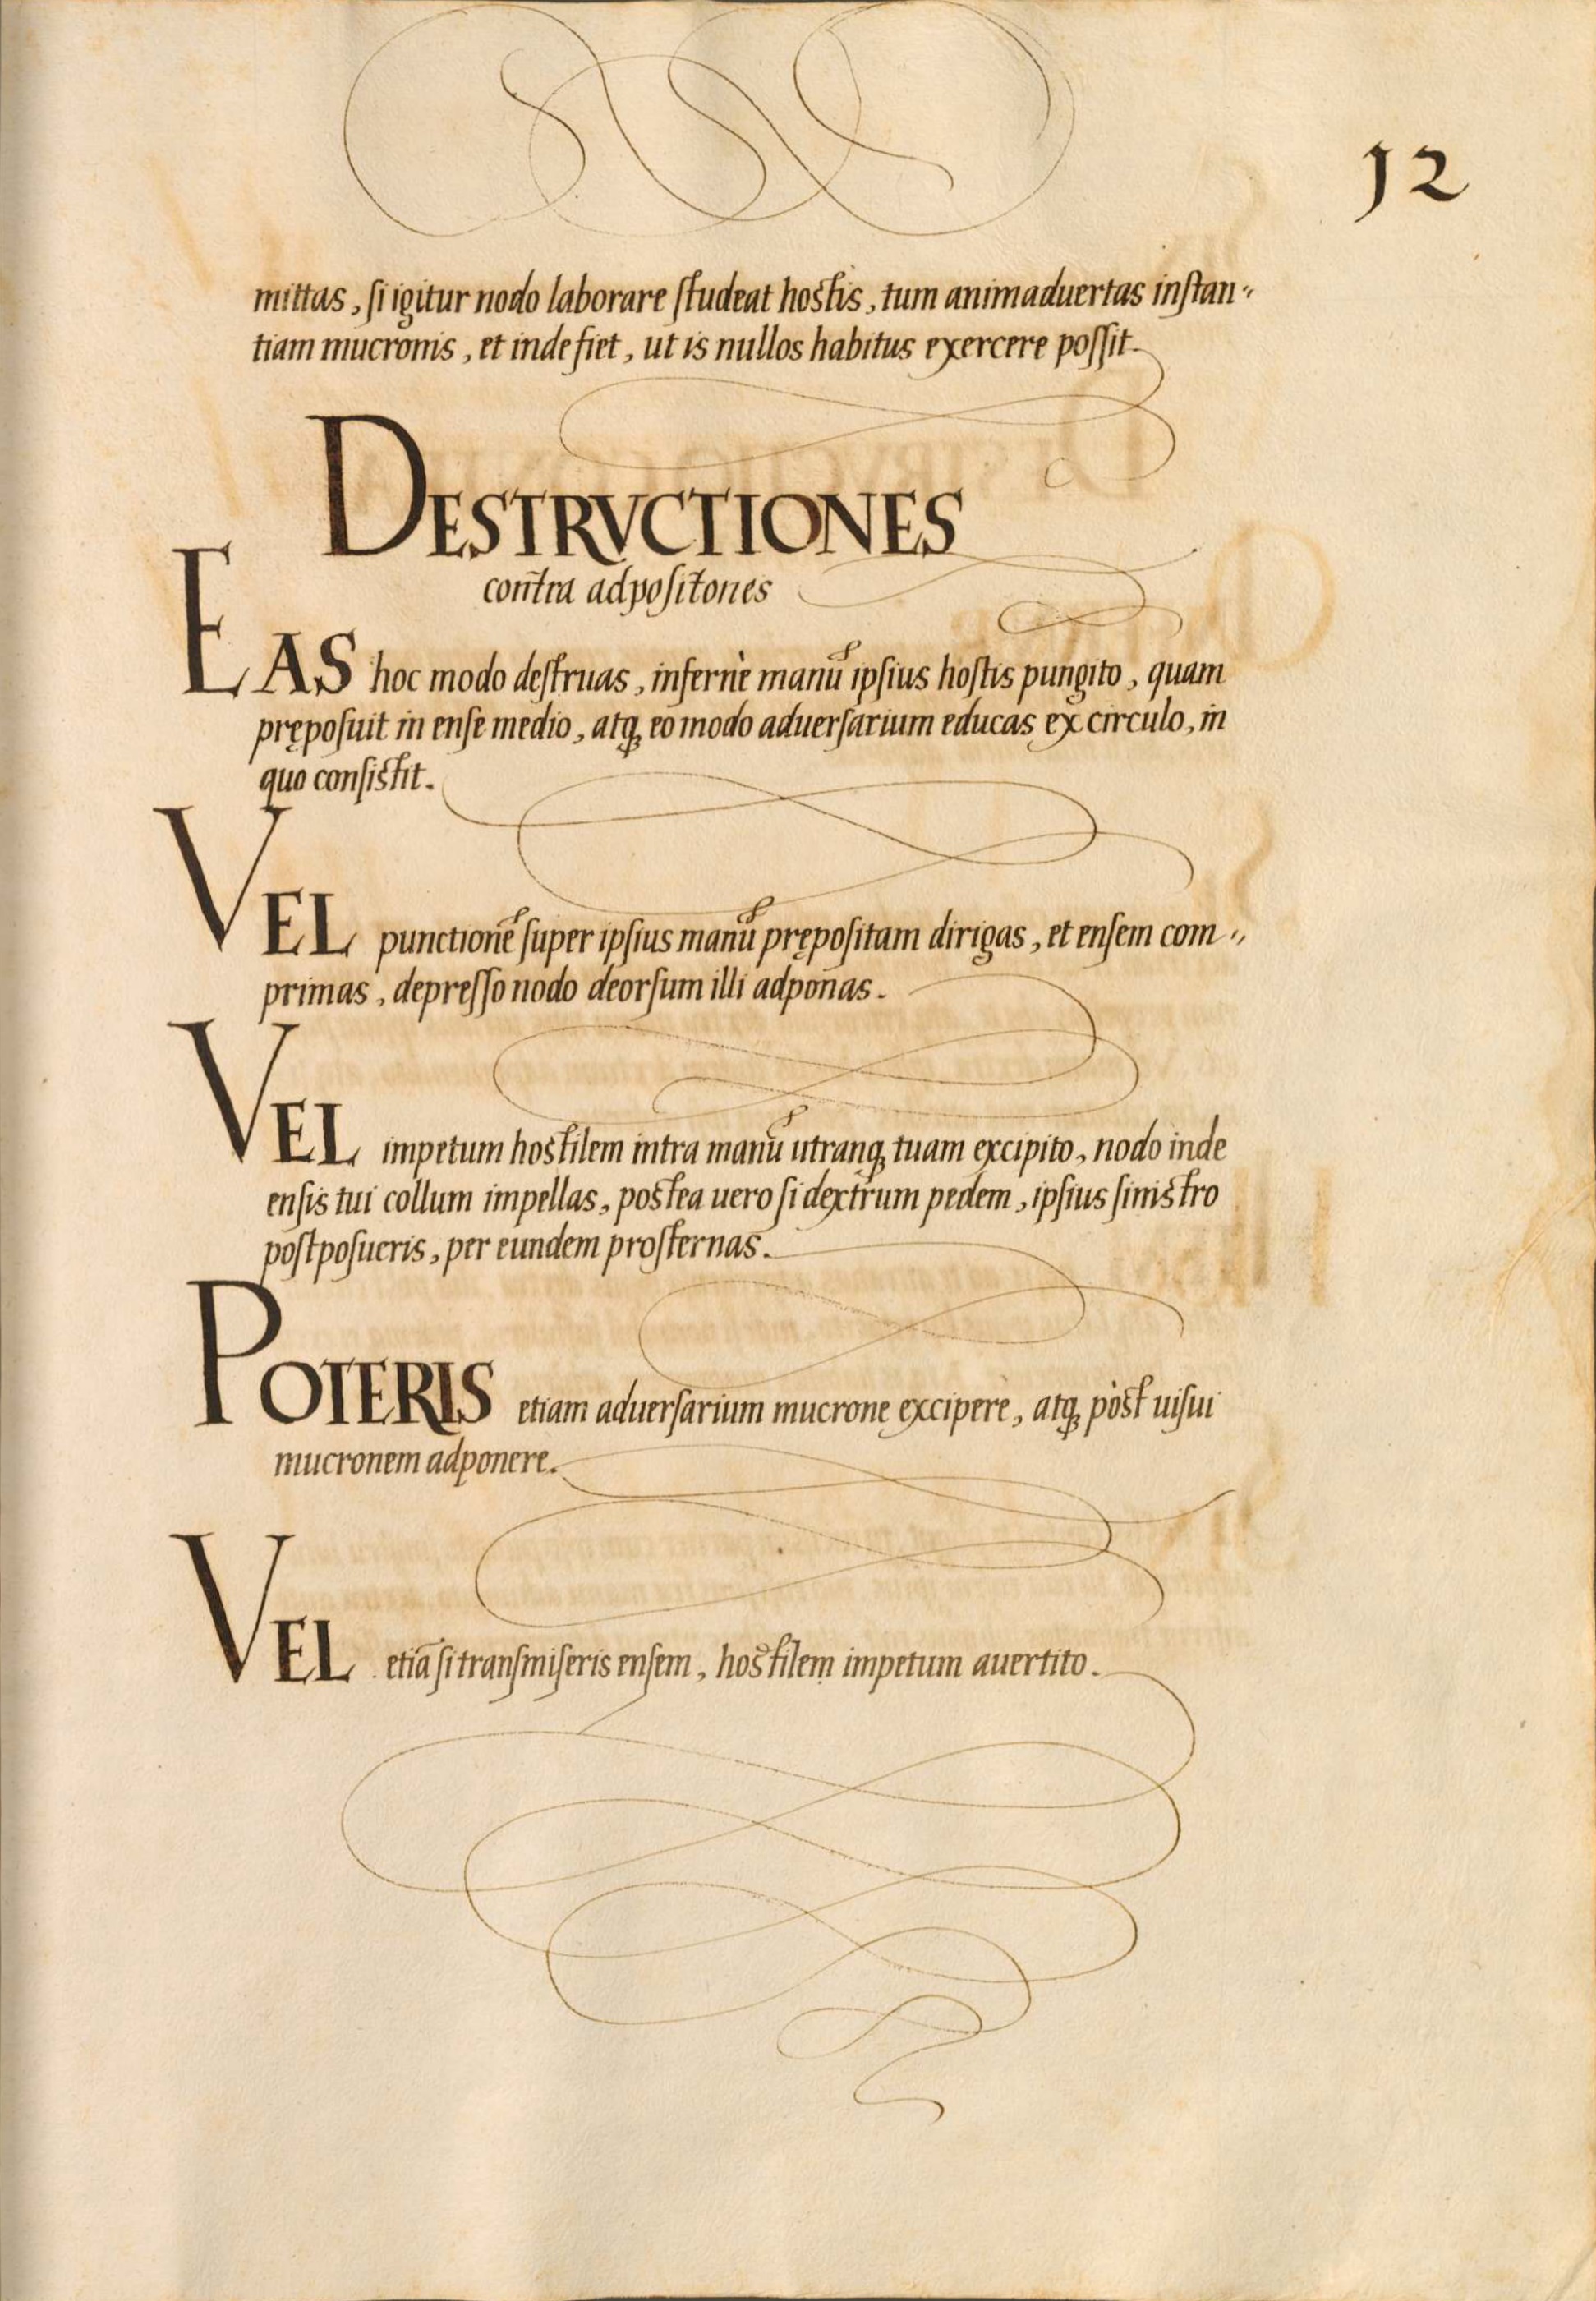 12
mittas, si igitur nodo laborare studeat hostis, tum animaduertas instan-
tiam mucronis, et inde fiet, ut is nullos habitus exercere possit.
DESTRVCTIONES
contra adpositones
EAS hoc modo destruas, infernè manū ipsius hostis pungito, quam
pręposuit in ense medio, atq; eo modo aduersarium educas ex circulo, in
quo consistit.
VEL punctionē super ipsius manū prępositam dirigas, et ensem com-
primas, depresso nodo deorsum illi adponas.
VEL impetum hostilem intra manū utranq; tuam excipito, nodo inde
ensis tui collum impellas, postea uero si dextrum pedem, ipsius sinistro
postposueris, per eundem prosternas.
POTERIS etiam aduersarium mucrone excipere, atq; pòst uisui
mucronem adponere.
VEL etiā si transmiseris ensem, hostilem impetum auertito.